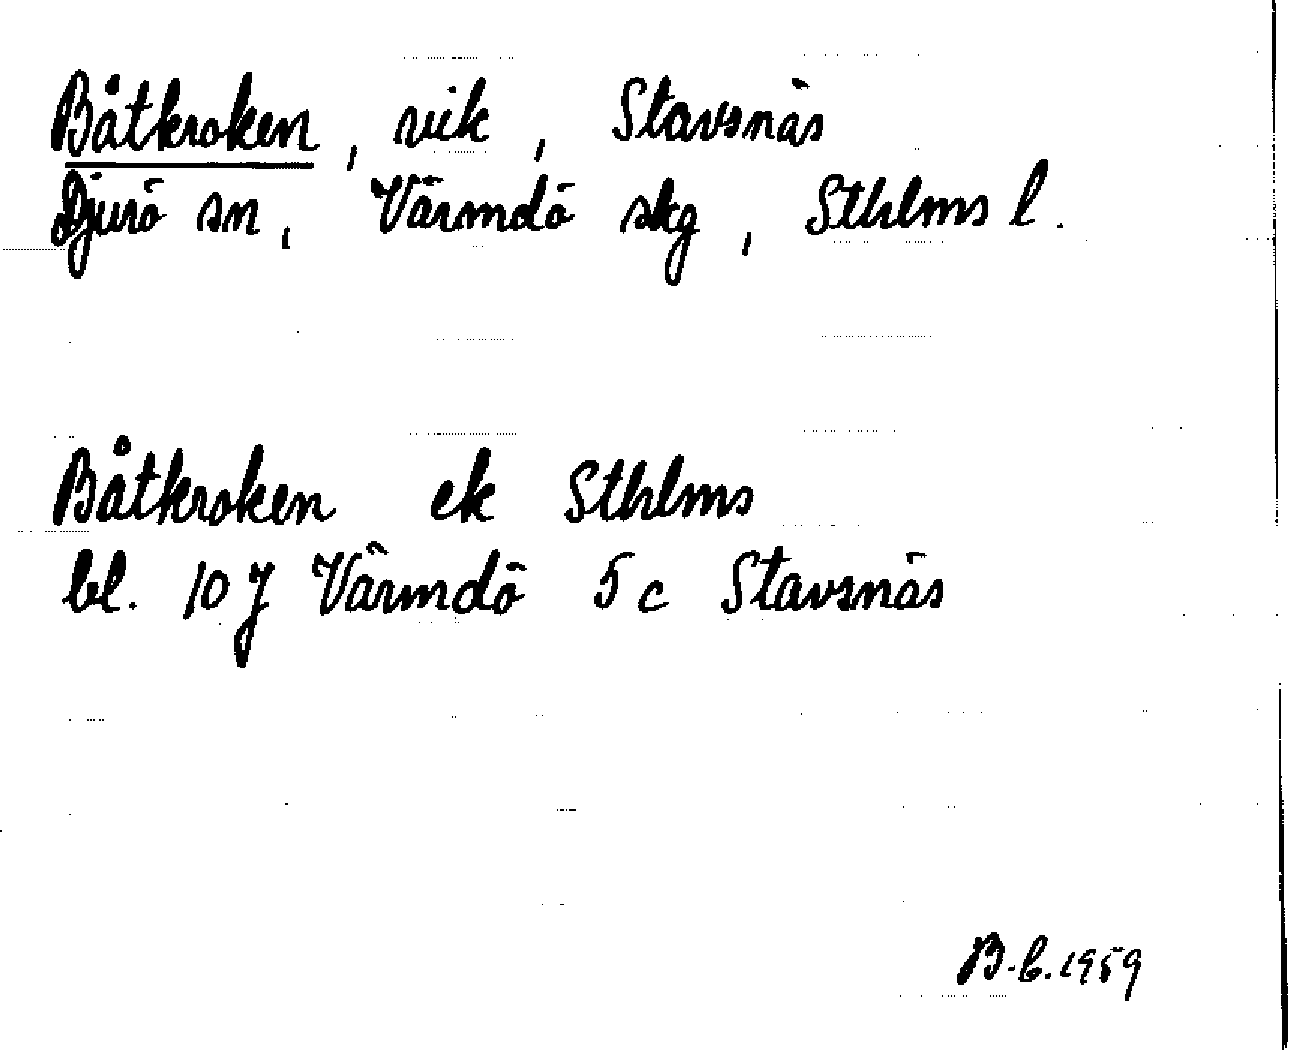 Båtkroken, vik, Stavsnäs
Djurö sn, Värmdö skg, Sthlms l.
Båtkroken ek Sthlms
bl. 10 J Värmdö 5 c Stavsnäs
B.b.1959